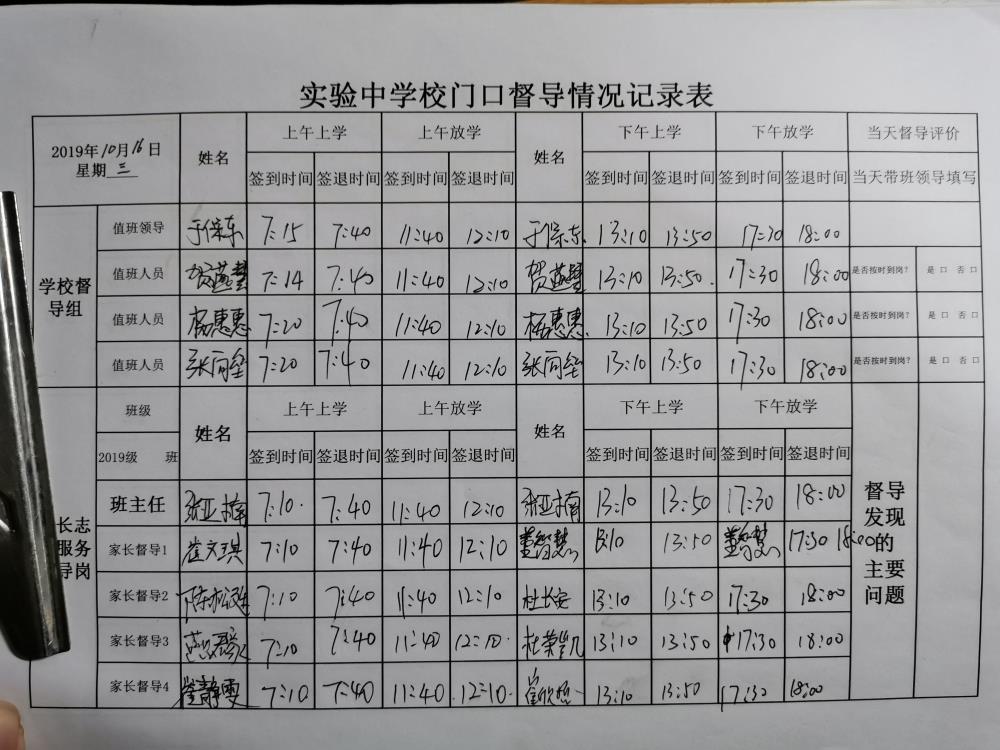 实验中学校门口督导情况记录表
2019年10月16日
星期三
姓名 上午上学 上午放学 姓名 下午上学 下午放学 当天督导评价
签到时间 签退时间 签到时间 签退时间 签到时间 签退时间 签到时间 签退时间 当天带班领导填写
学校督导组
值班领导 于保东 7:15 7:40 11:40 12:10 于保东 13:10 13:50 17:30 18:00
值班人员 贺燕慧 7:14 7:40 11:40 12:10 贺燕慧 13:10 13:50 17:30 18:00 是否按时到岗? 是 口 否 口
值班人员 杨惠惠 7:20 7:40 11:40 12:10 杨惠惠 13:10 13:50 17:30 18:00 是否按时到岗? 是 口 否 口
值班人员 7:20 7:40 11:40 12:10 13:10 13:50 17:30 18:00 是否按时到岗? 是 口 否 口
班级 姓名 上午上学 上午放学 姓名 下午上学 下午放学
2019级 班 签到时间 签退时间 签到时间 签退时间 签到时间 签退时间 签到时间 签退时间
长志
服务
导岗
班主任 张亚楠 7:10 7:40 11:40 12:10 张亚楠 13:10 13:50 17:30 18:00
家长督导1 崔文琪 7:10 7:40 11:40 12:10 13:10 13:50 17:30 18:00
家长督导2 7:10 7:40 11:40 12:10 杜长安 13:10 13:50 17:30 18:00
家长督导3 7:10 7:40 11:40 12:10 杜荣凯 13:10 13:50 17:30 18:00
家长督导4 崔静雯 7:10 7:40 11:40 12:10 13:10 13:50 17:30 18:00
督导
发现
的
主要
问题